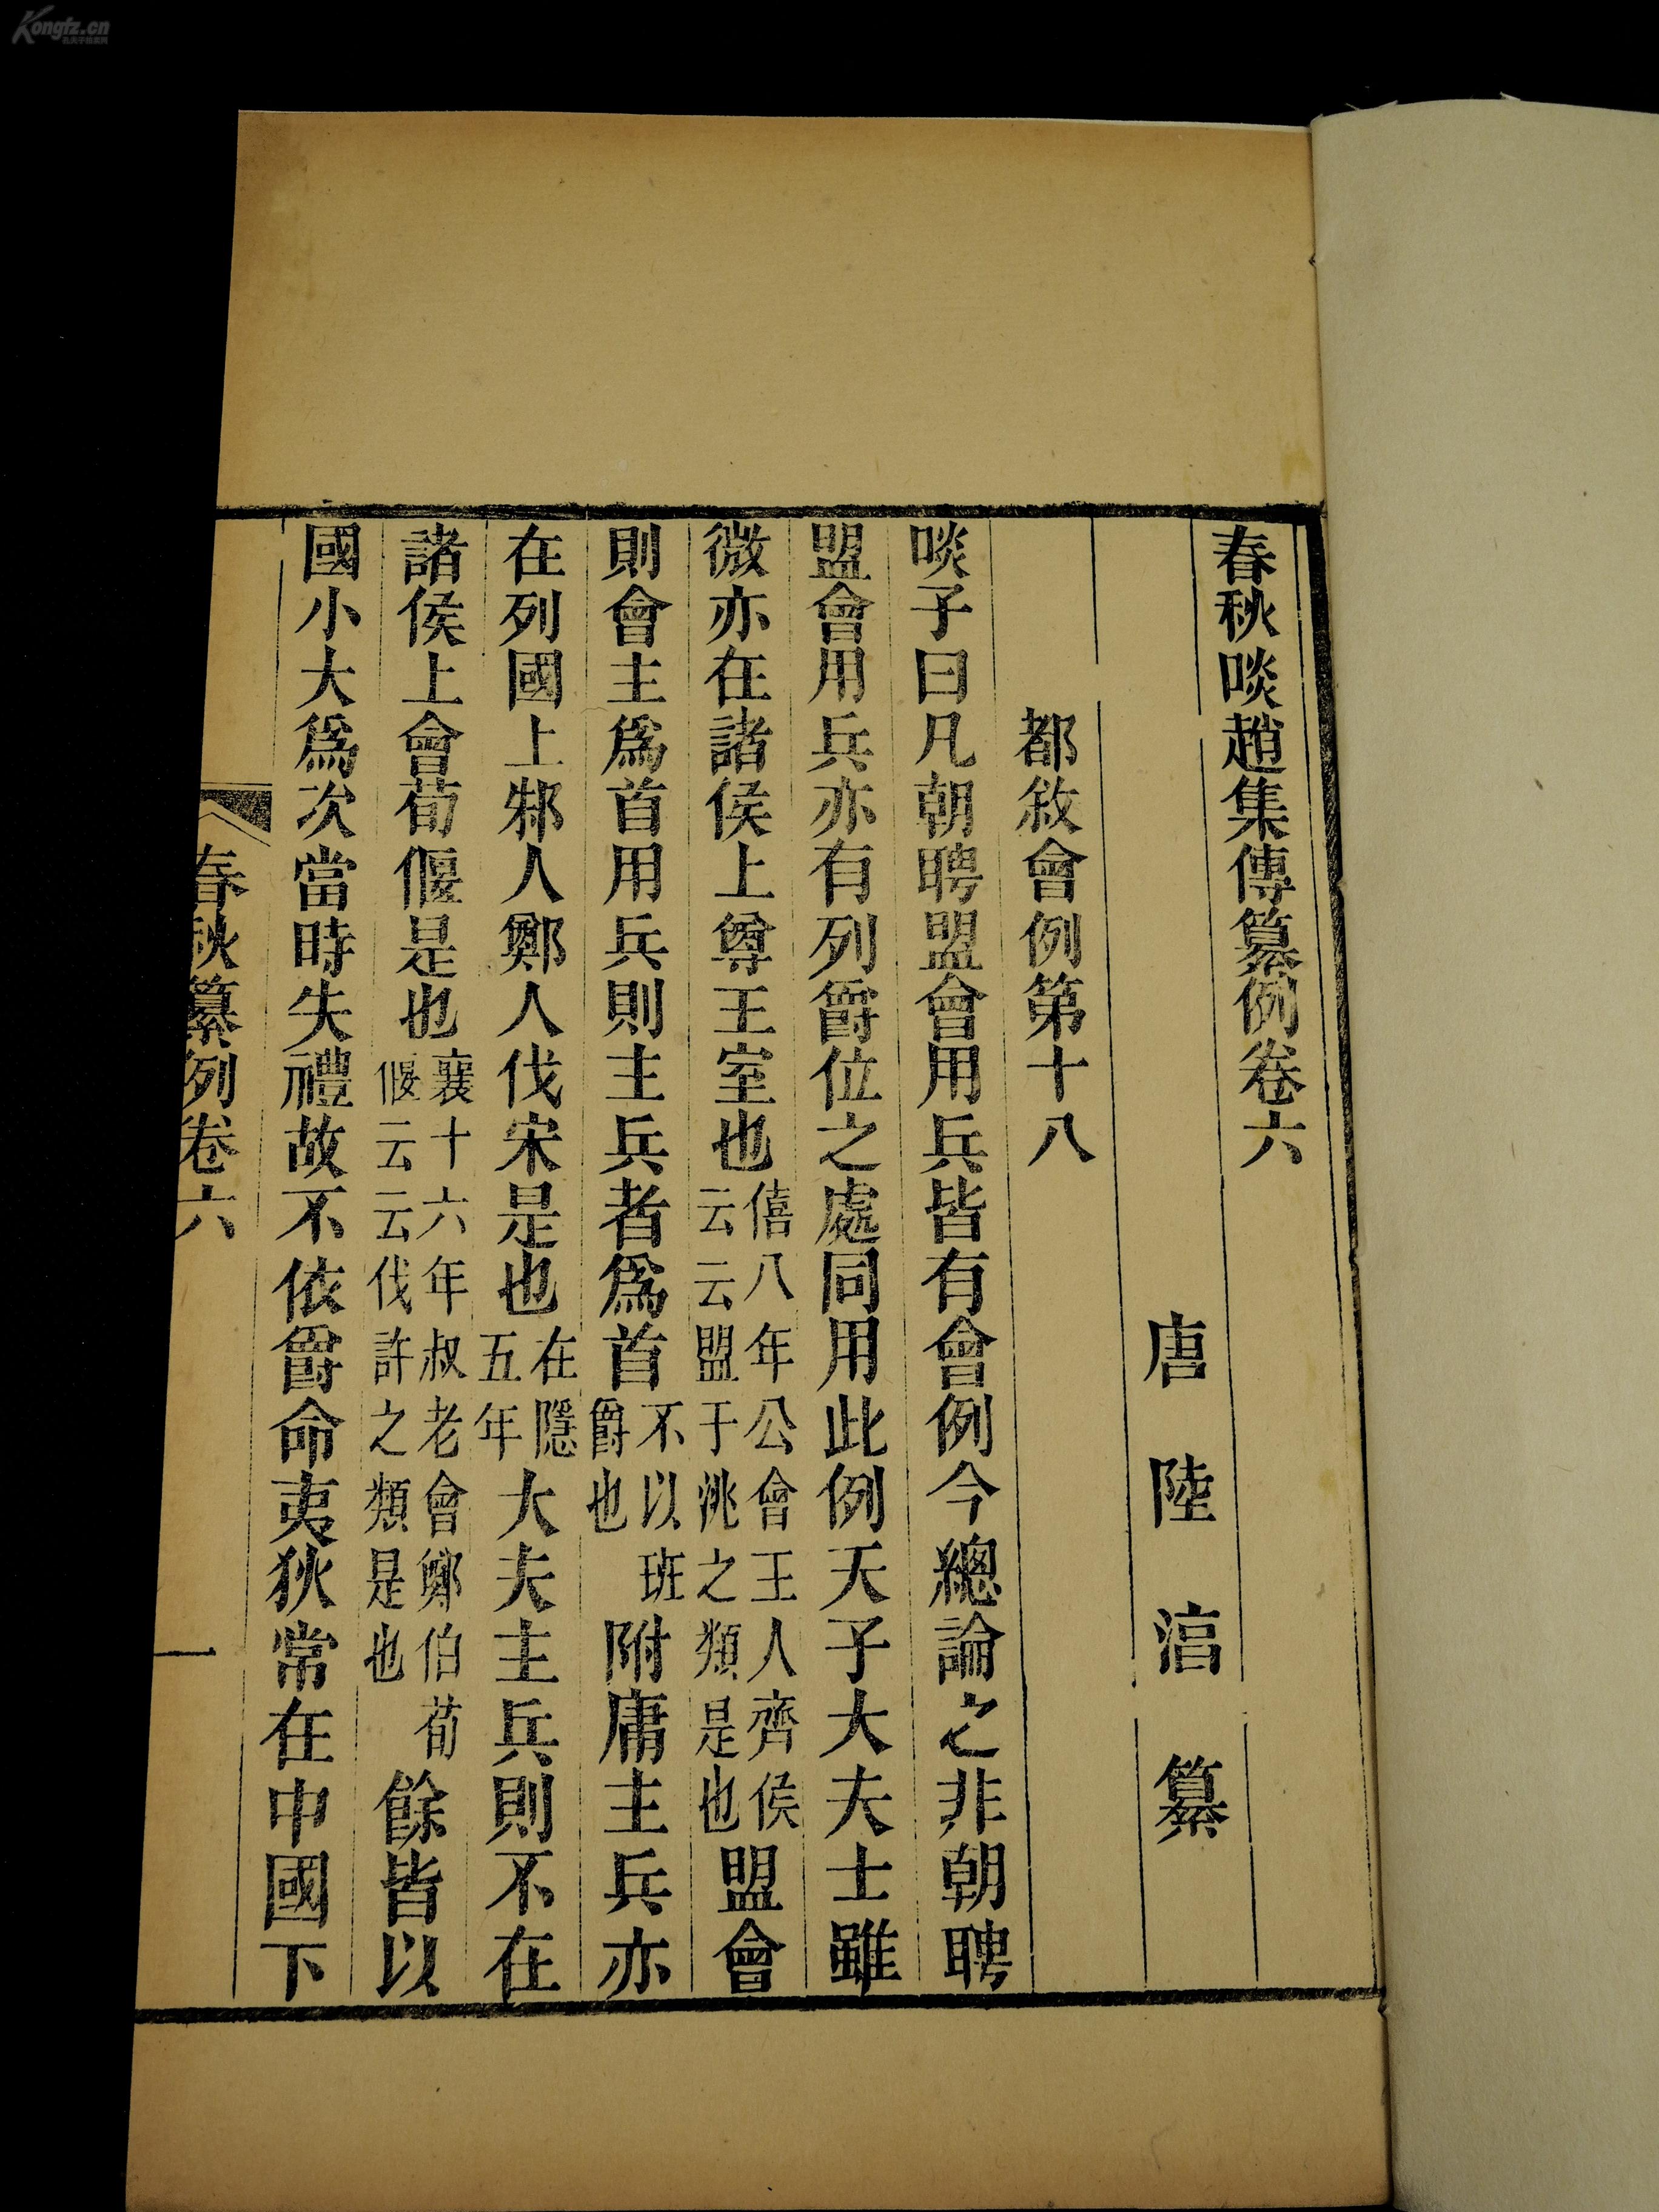 Kongfz.cn
孔夫子旧书网
春秋啖趙集傳纂例卷六
唐陸淳纂
都敘會例第十八
啖子曰凡朝聘盟會用兵皆有會例今總論之非朝聘
盟會用兵亦有列爵位之處同用此例天子大夫士雖
微亦在諸侯上尊王室也僖八年公會王人齊侯云云盟于洮之類是也盟會
則會主爲首用兵則主兵者爲首不以班爵也附庸主兵亦
在列國上邾人鄭人伐宋是也在隱五年大夫主兵則不在
諸侯上會荀偃是也襄十六年叔老會鄭伯荀偃云云伐許之類是也餘皆以
國小大爲次當時失禮故不依爵命夷狄常在中國下
春秋纂例卷六
一